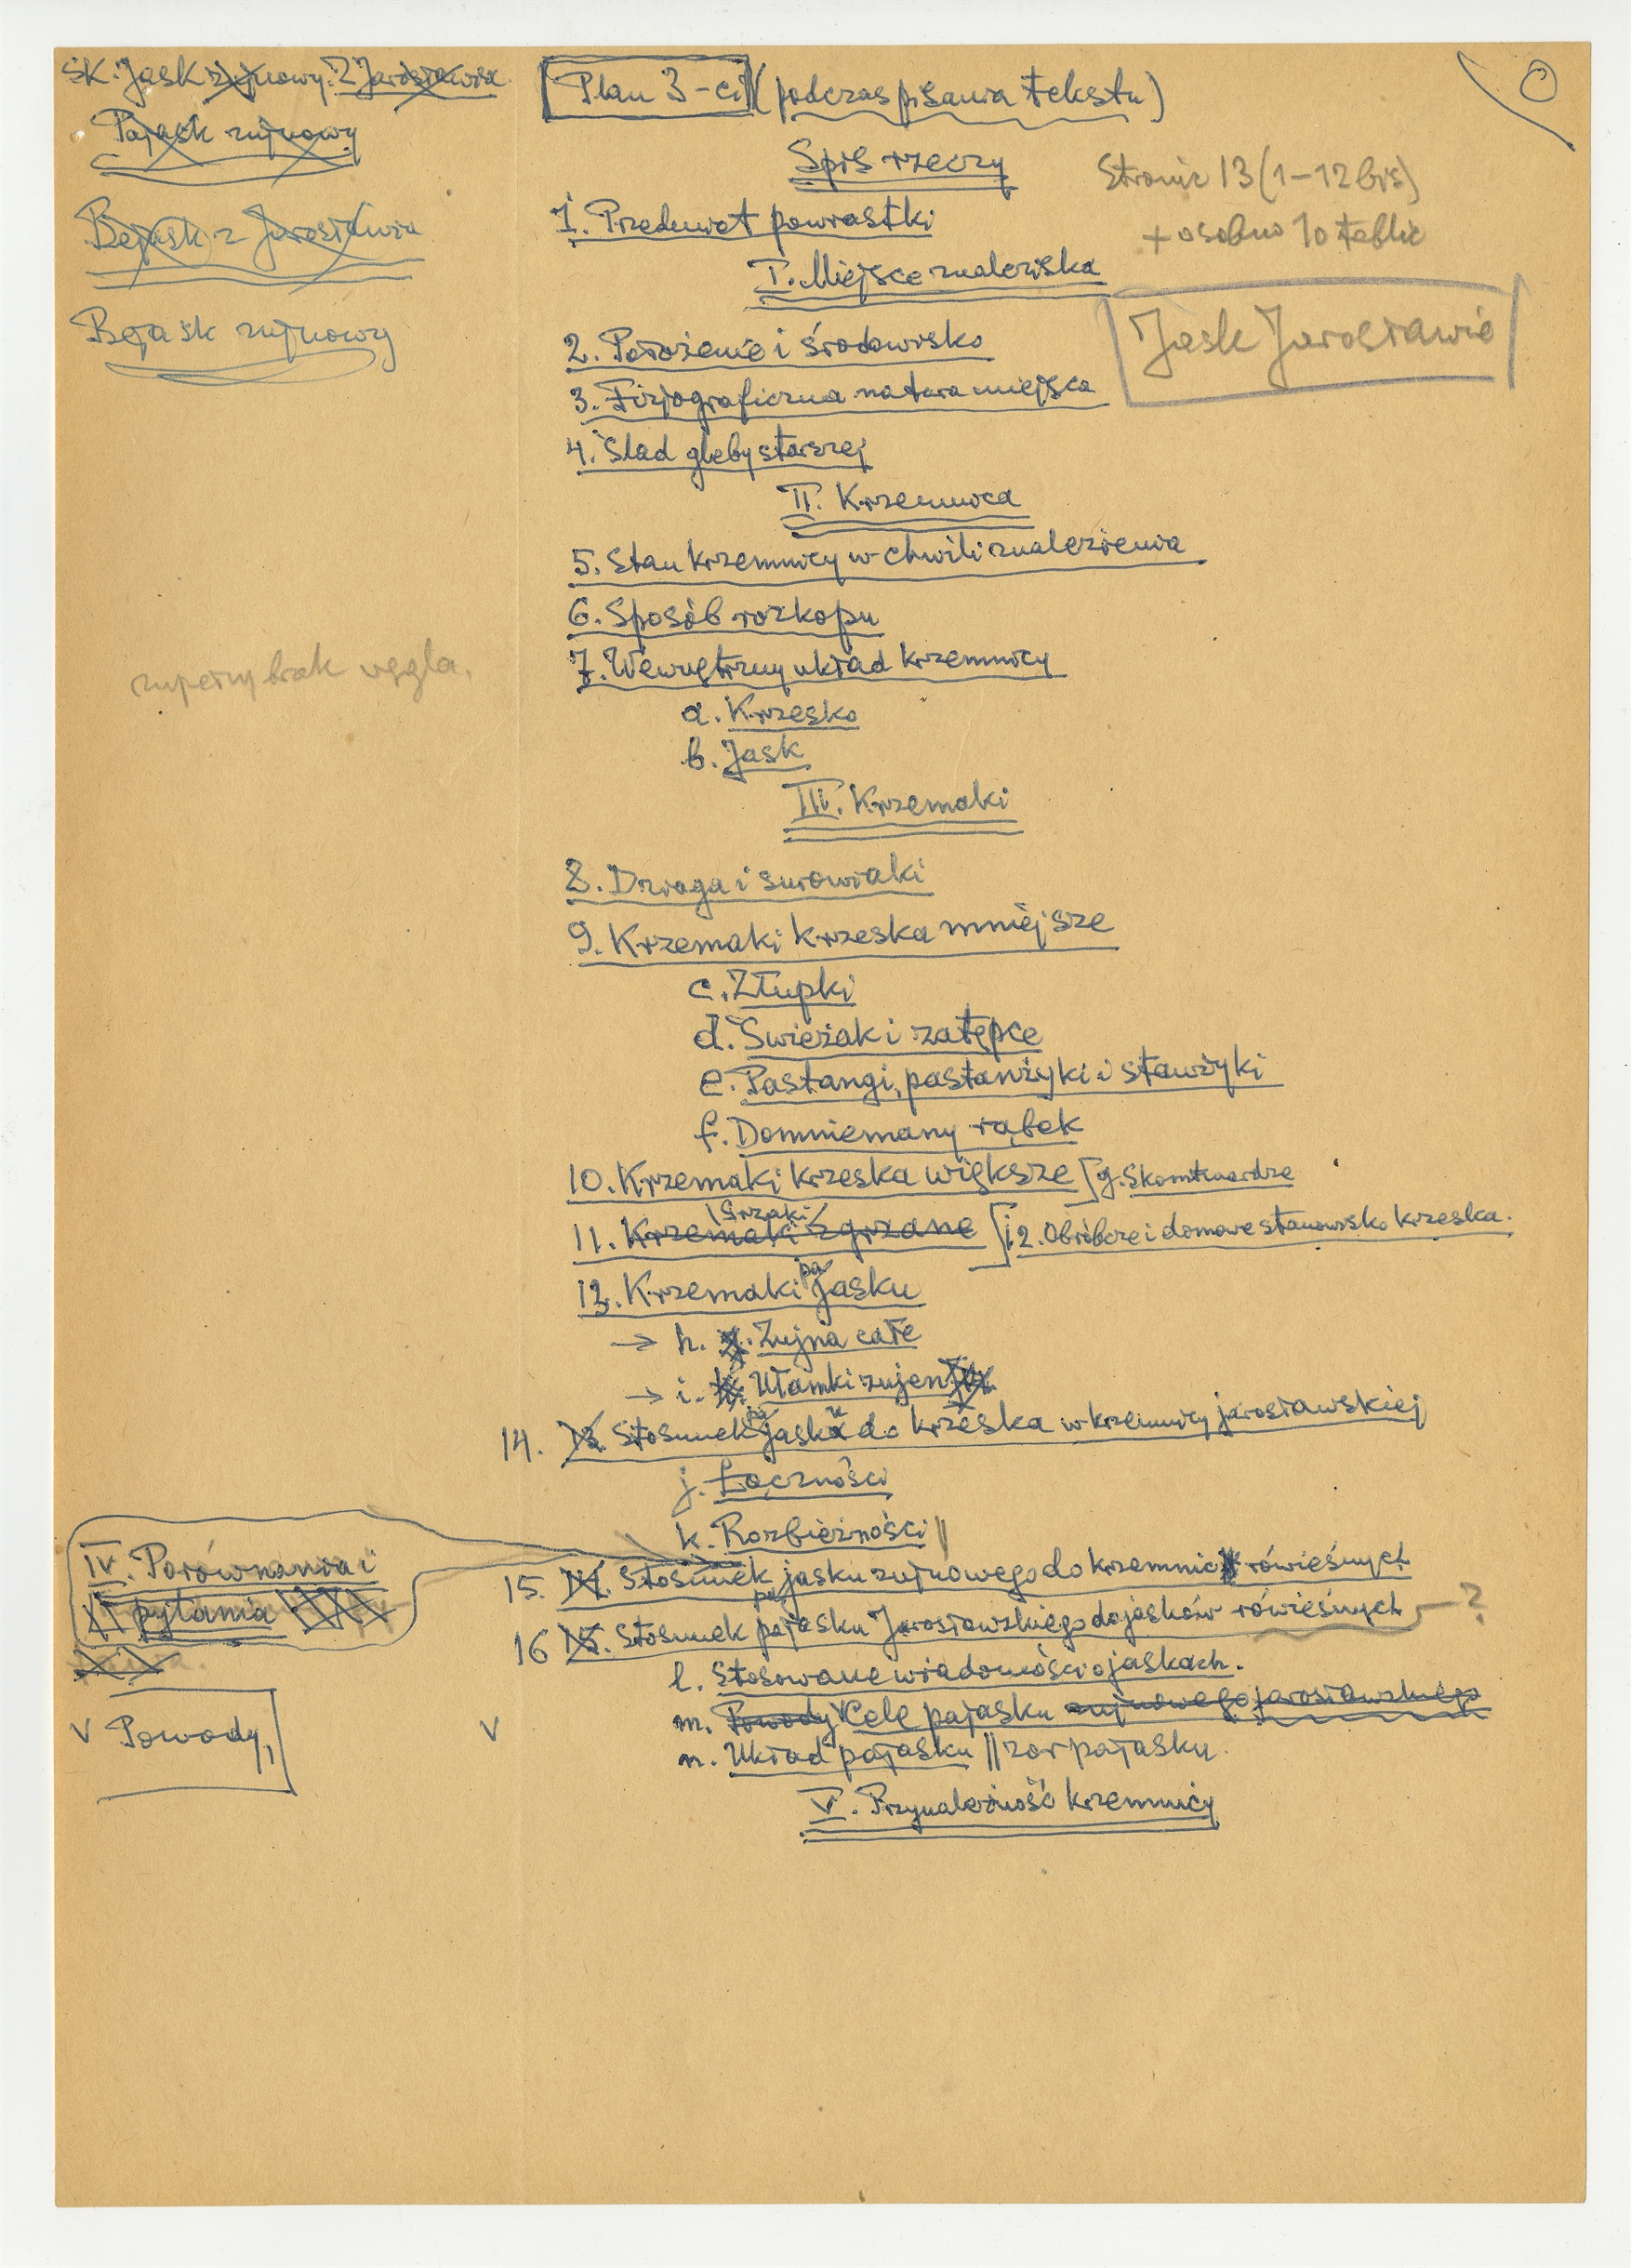 Plan 3-ci (podczas pisania tekstu)
Pajask zujnowy
Bejask z Jarosławia
Bejask zujnowy
Spis rzeczy
Stronic 13 (1-12 bis)
+ osobno 10 tablic
Jask Jarosławie
1. Przedmiot powiastki
I. Miejsce znaleziska
2. Położenie i środowisko
3. Fizjograficzna natura miejsca
4. Ślad gleby starszej
II. Krzemnica
5. Stan krzemnicy w chwili znalezienia
6. Sposób rozkopu
zupełny brak węgla.
7. Wewnętrzny układ krzemnicy
a. Krzesko
b. Jask
III. Krzemaki
8. Drzaga i surowiaki
9. Krzemaki krzeska mniejsze
c. Złupki
d. Świeżaki zatępce
e. Pastangi, pastawżyki i stawżyki
f. Domniemany rąbek
10. Krzemaki krzeska większe [g. Skomtwardze
11. Krzemaki zgrzane
Grzaki
12. Obróbcze i domowe stanowisko krzeska.
13. Krzemaki pajasku
→ h. Zujna całe
→ i. Ułamki zujen
14. 13. Stosunek pajasku do krzeska w krzemnicy jarosławskiej
j. Łączności
k. Rozbieżności ||
IV. Porównania i
pytania
15. 14. Stosunek jasku zujnowego do krzemnic rówieśnych
16 15. Stosunek pajasku Jarosławskiego do jasków rówieśnych - ?
l. Stosowane wiadomości o jaskach.
m. Powody Cele pajasku zujnowego jarosławskiego
V Powody,
V
n. Układ pajasku || zar pajasku
V. Przynależność krzemnicy